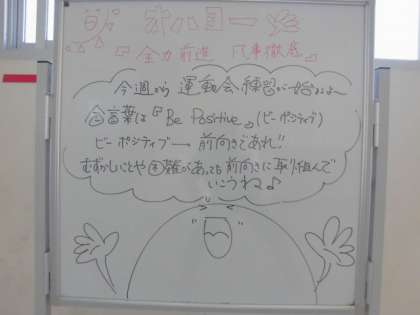 『全力前進 凡事徹底』
今週から運動会練習が始まるよ〜
合言葉は『Be Positive』(ビーポジティブ)
ビーポジティブ→前向きであれ!!
むずかしいことや困難があっても前向きに取り組んで
いこうね♪